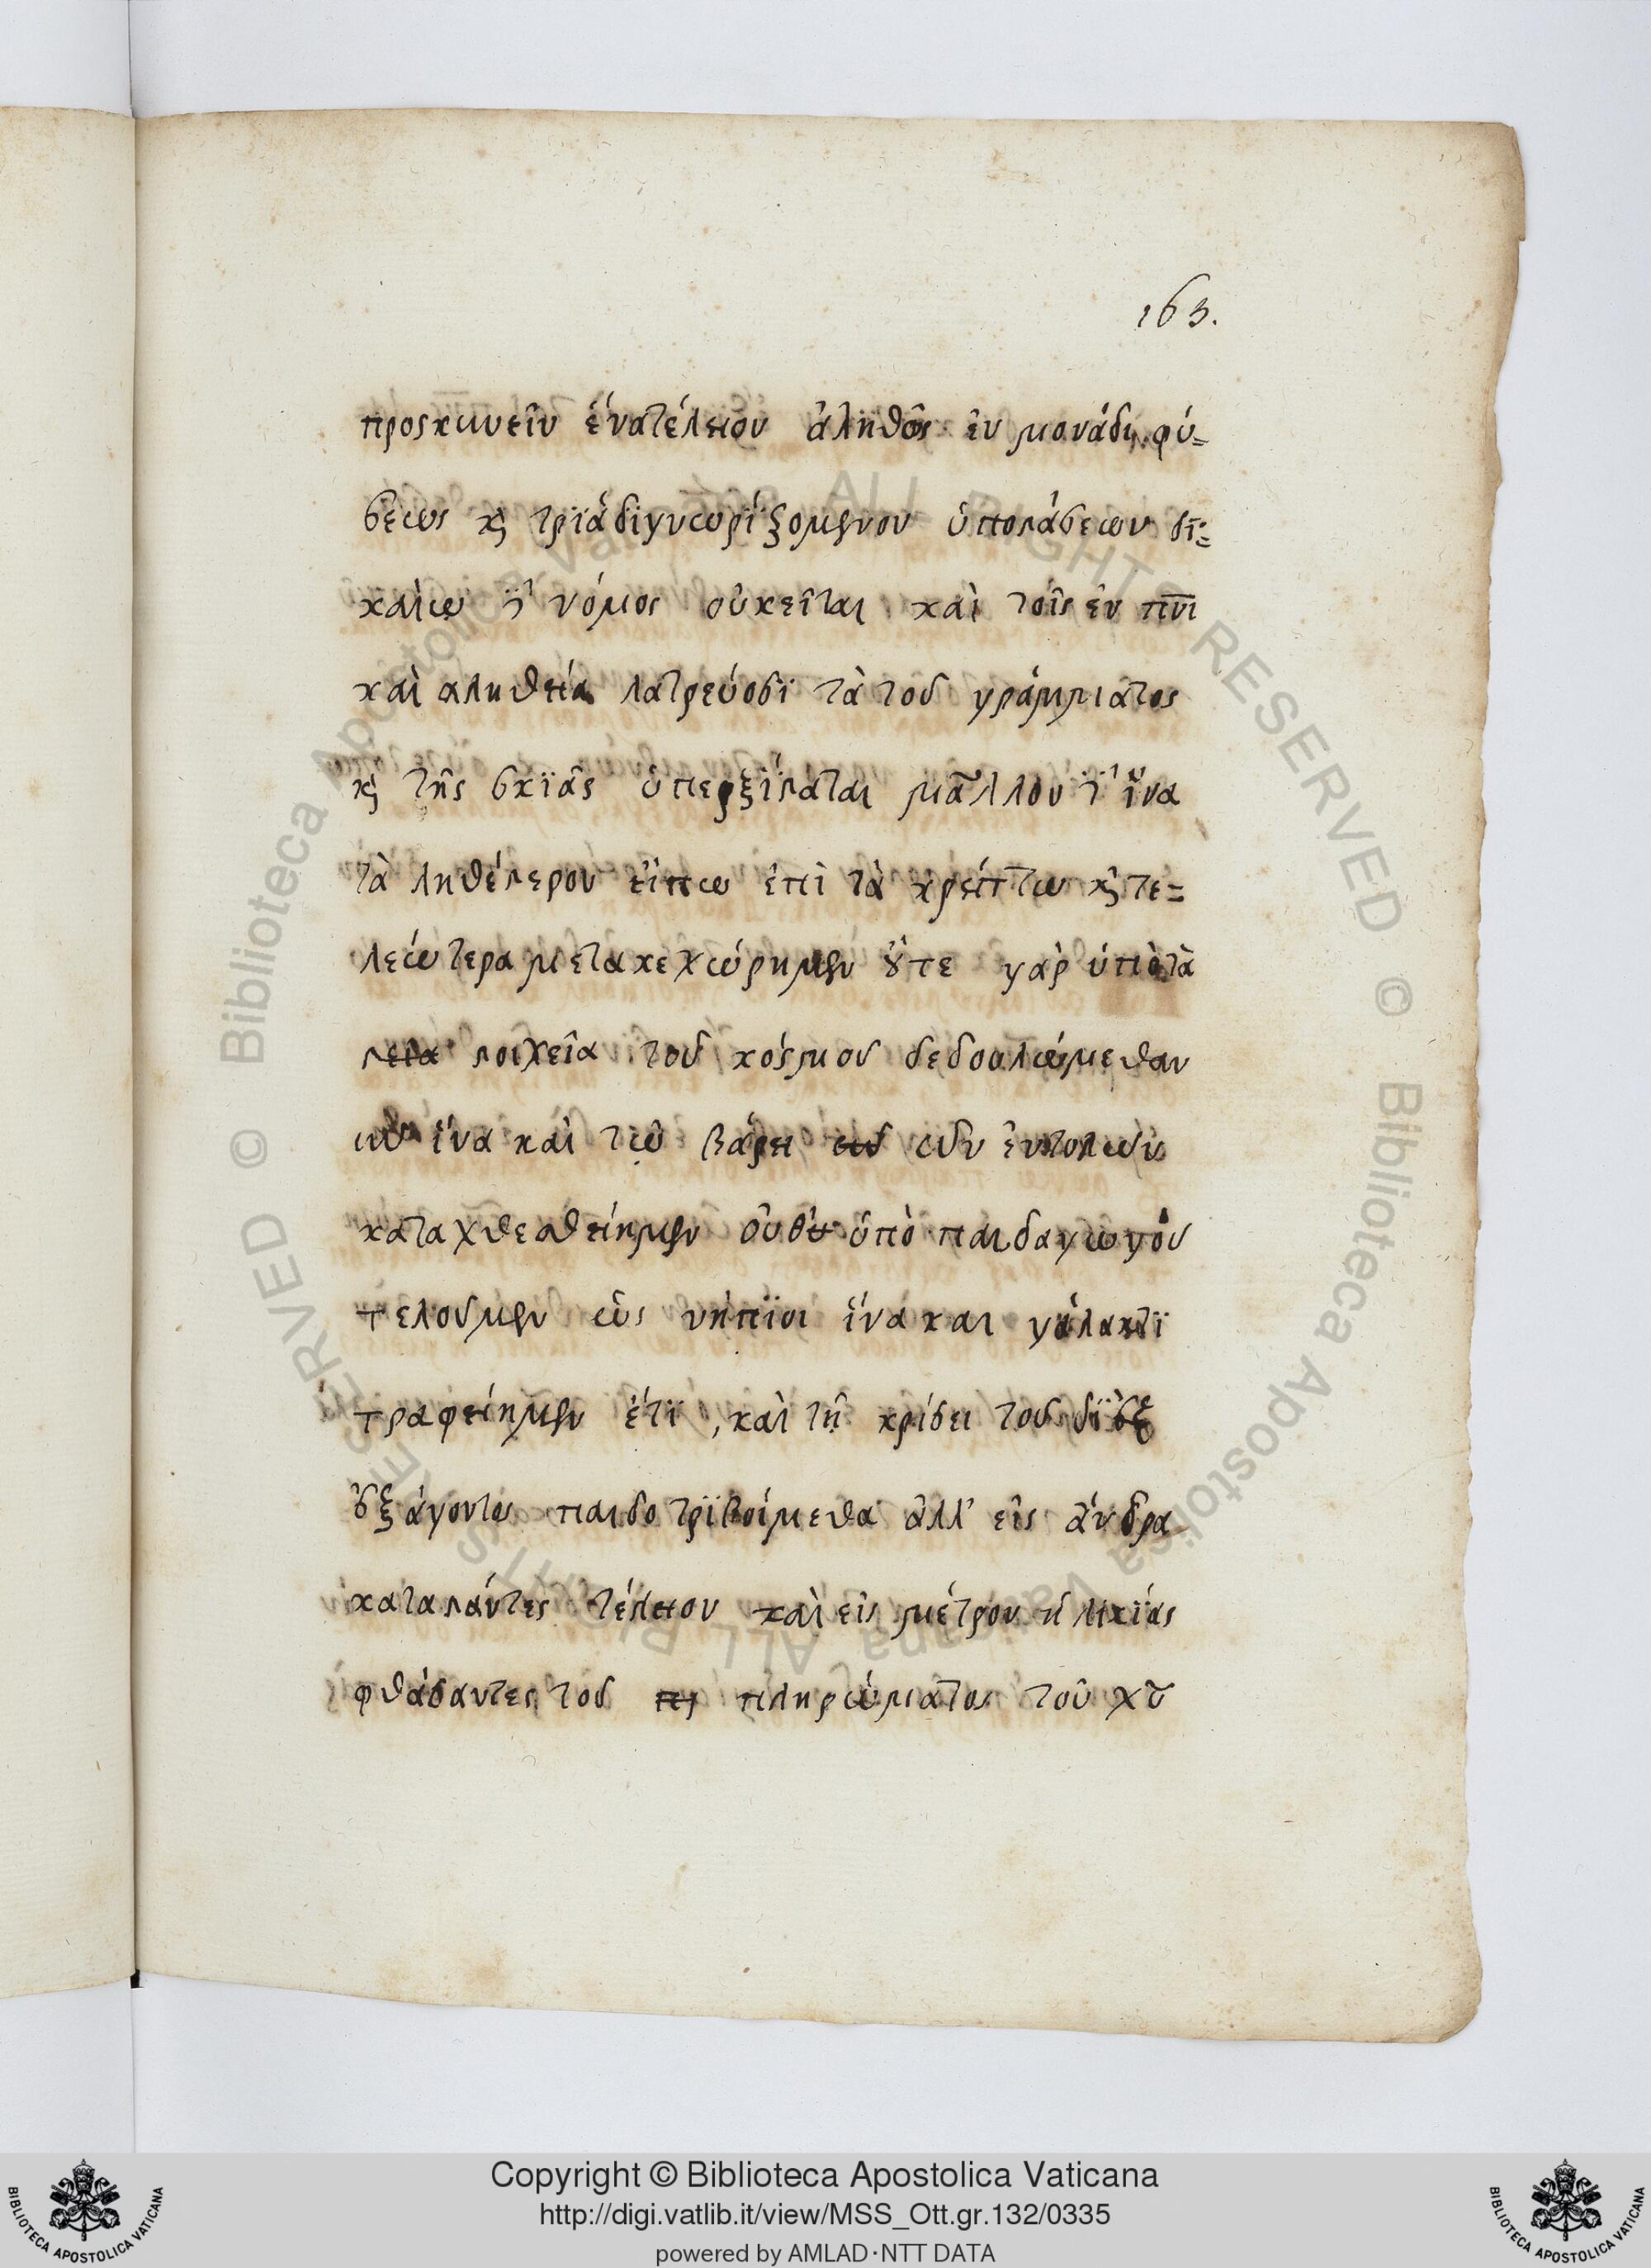 163.
προσκυνεῖν ἕνα τέλειον ἀληθῶς ἐν μονάδι φύ=
σεως κ τρϊάδι γνωρϊζομενον ὑποστάσεων δϊ=
καίω ϊ νόμος οὐκεῖται καὶ τοῖς ἐν πνι
καὶ αληθεία λατρεύοσϊ τὰ τοῦ γράμματος
κ τῆς σκϊᾶς ὑπερξίσταται μᾶλλον ϊ ἵνα
τὰ ληθέστερον εἴπω ἐπὶ τὰ κρείττω κ τε=
λεώτερα μετακεχώρημεν οὔτε γὰρ ὑπὸ τὰ
στοιχεῖα τοῦ κόσμου δεδουλώμεθαν
ἵνα καὶ τῷ βάρει τῶν ἐντολῶν
καταχθεσθείημεν οὔθ ὑπὸ παιδαγωγοῦ
τελοῦμεν ὡς νήπϊοι ἵνα και γάλακτϊ
τραφείημεν ἔτϊ, καὶ τῇ κρίσει τοῦ δϊεξ
εξάγοντος παιδοτρϊβοίμεθα ἀλλ' εἰς ἄνδρα
καταστάντες τέλειον καὶ εἰς μέτρον ἡλικϊας
φθάσαντες τοῦ πληρώματος τοῦ χυ
Copyright © Biblioteca Apostolica Vaticana
http://digi.vatlib.it/view/MSS_Ott.gr.132/0335
powered by AMLAD·NTT DATA
BIBLIOTECA APOSTOLICA VATICANA
BIBLIOTECA APOSTOLICA VATICANA